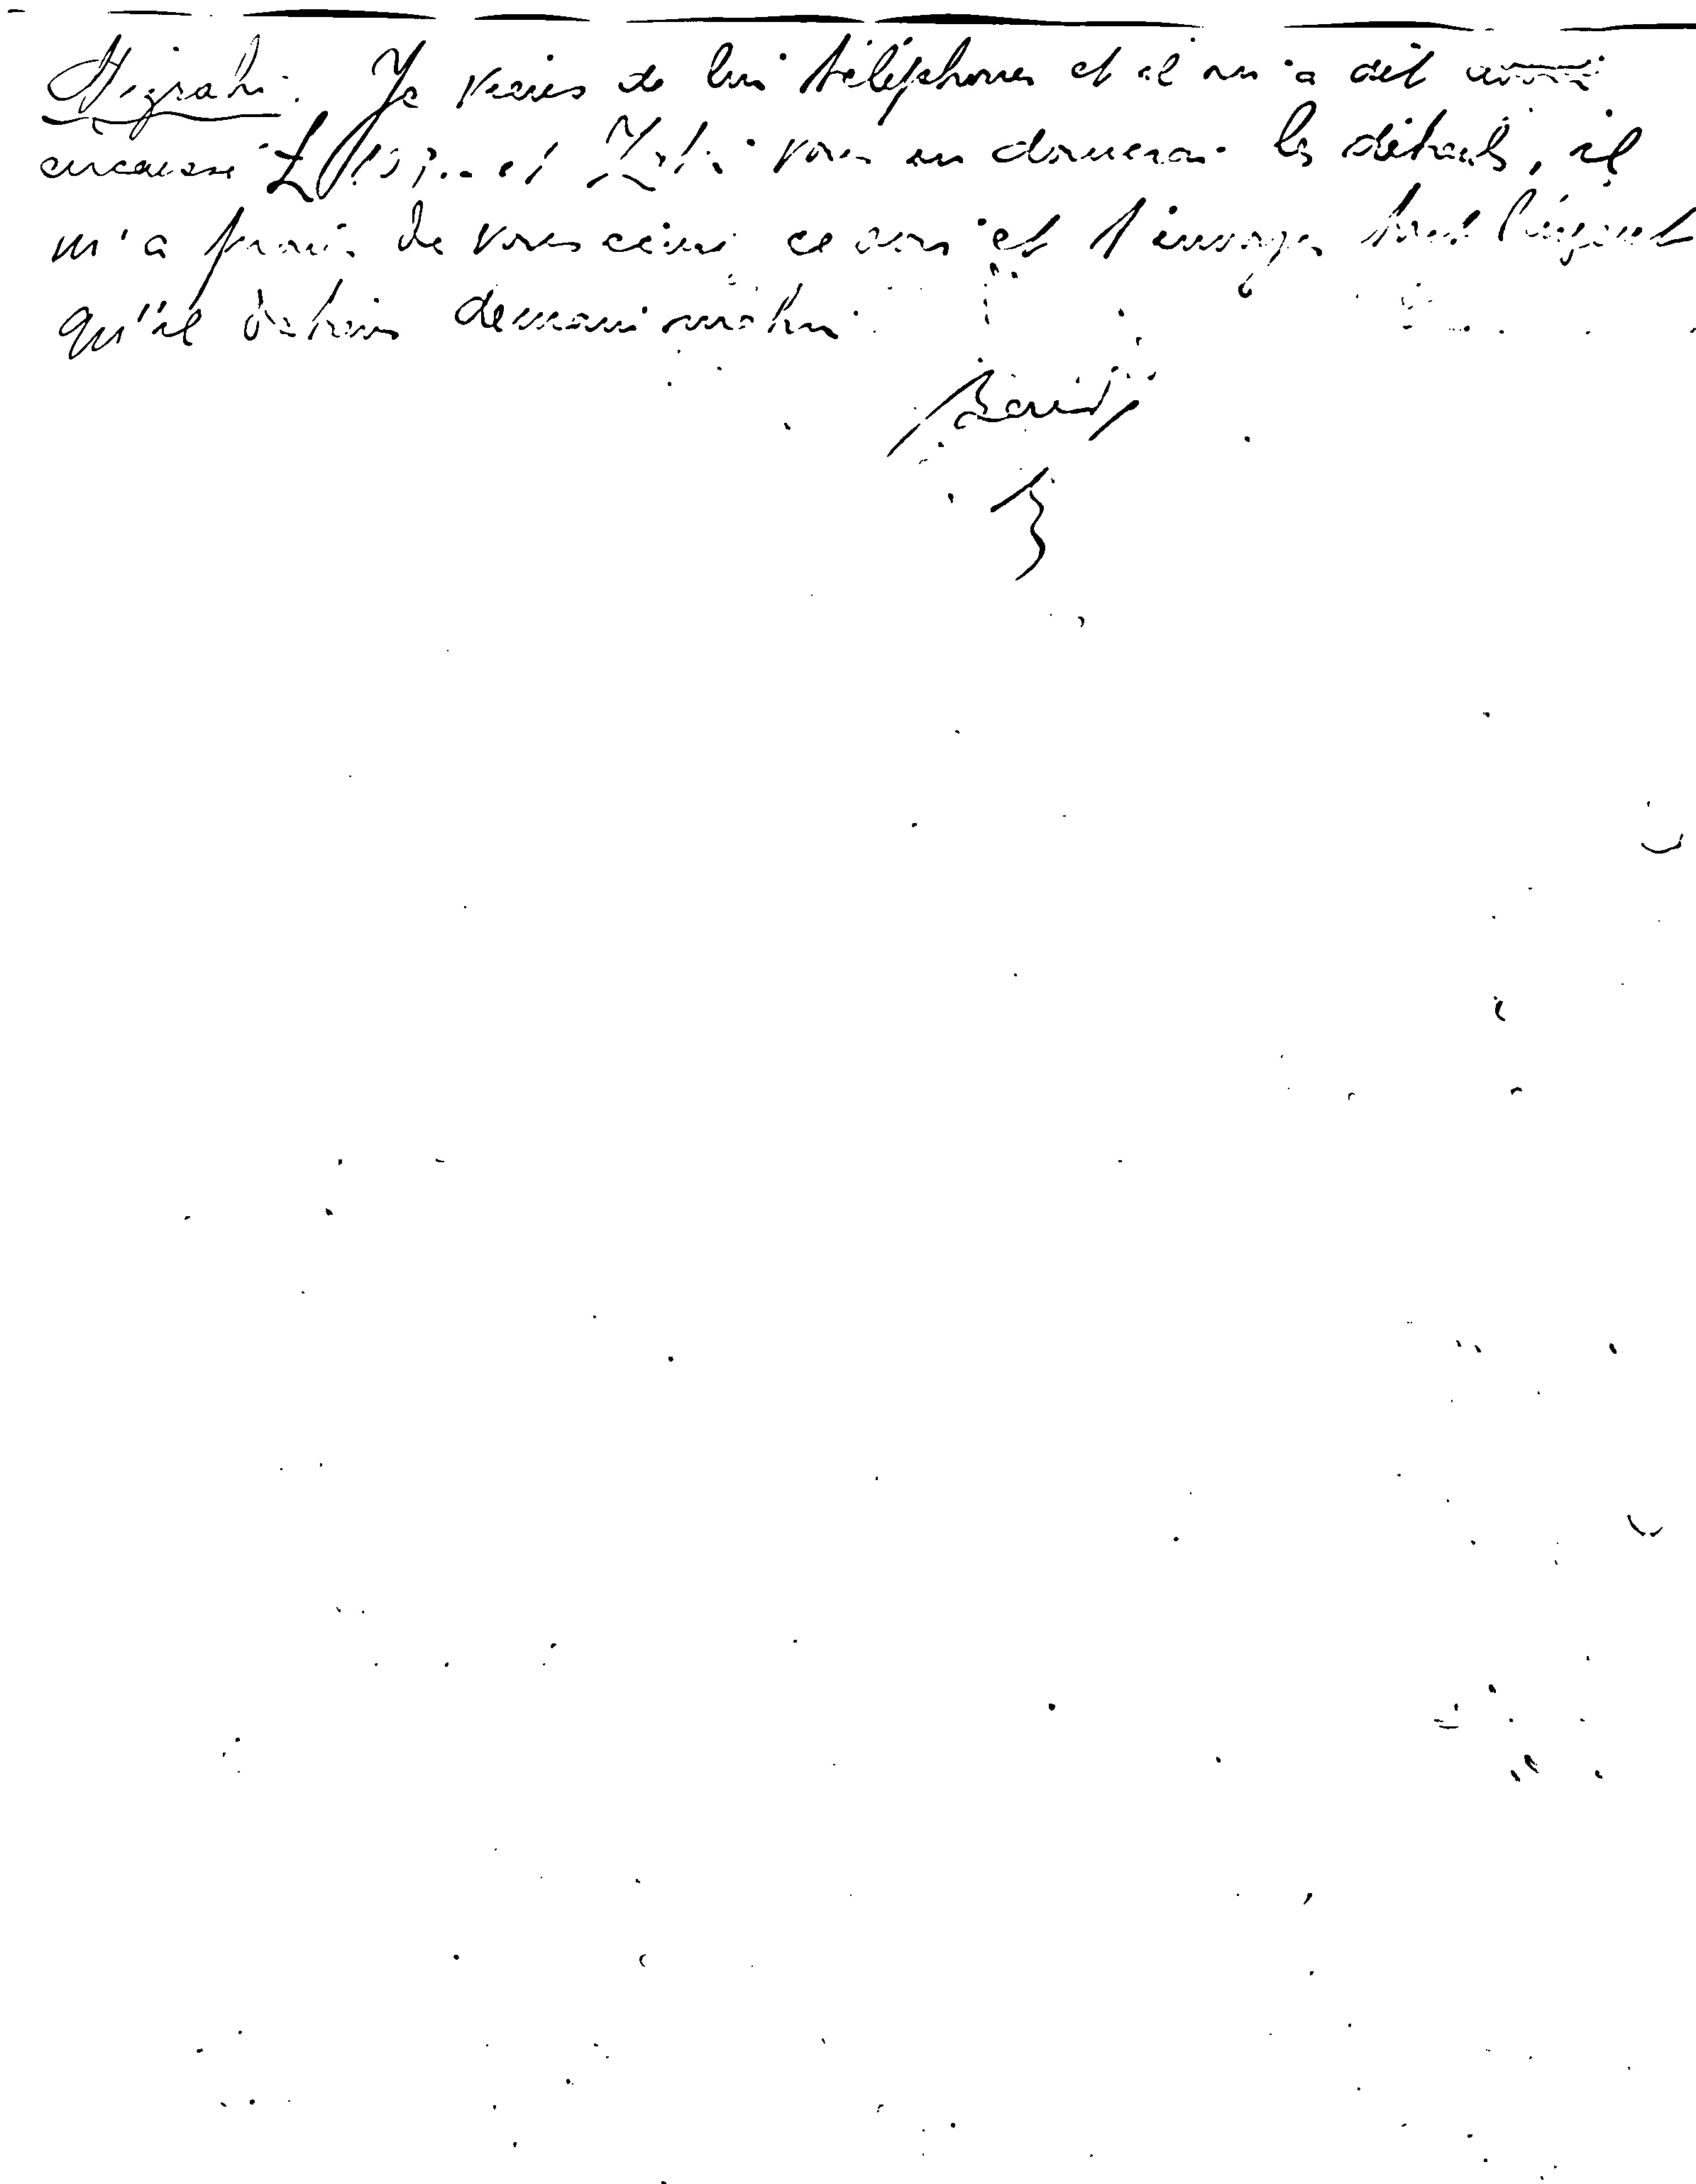 Mizrahi. Je viens de lui téléphoner et il m'a dit avoir
encaissé £ vous en donnerai les détails, il
m'a promis de vous écrire ce soir et d'envoyer tout l'argent
qu'il détient demain matin